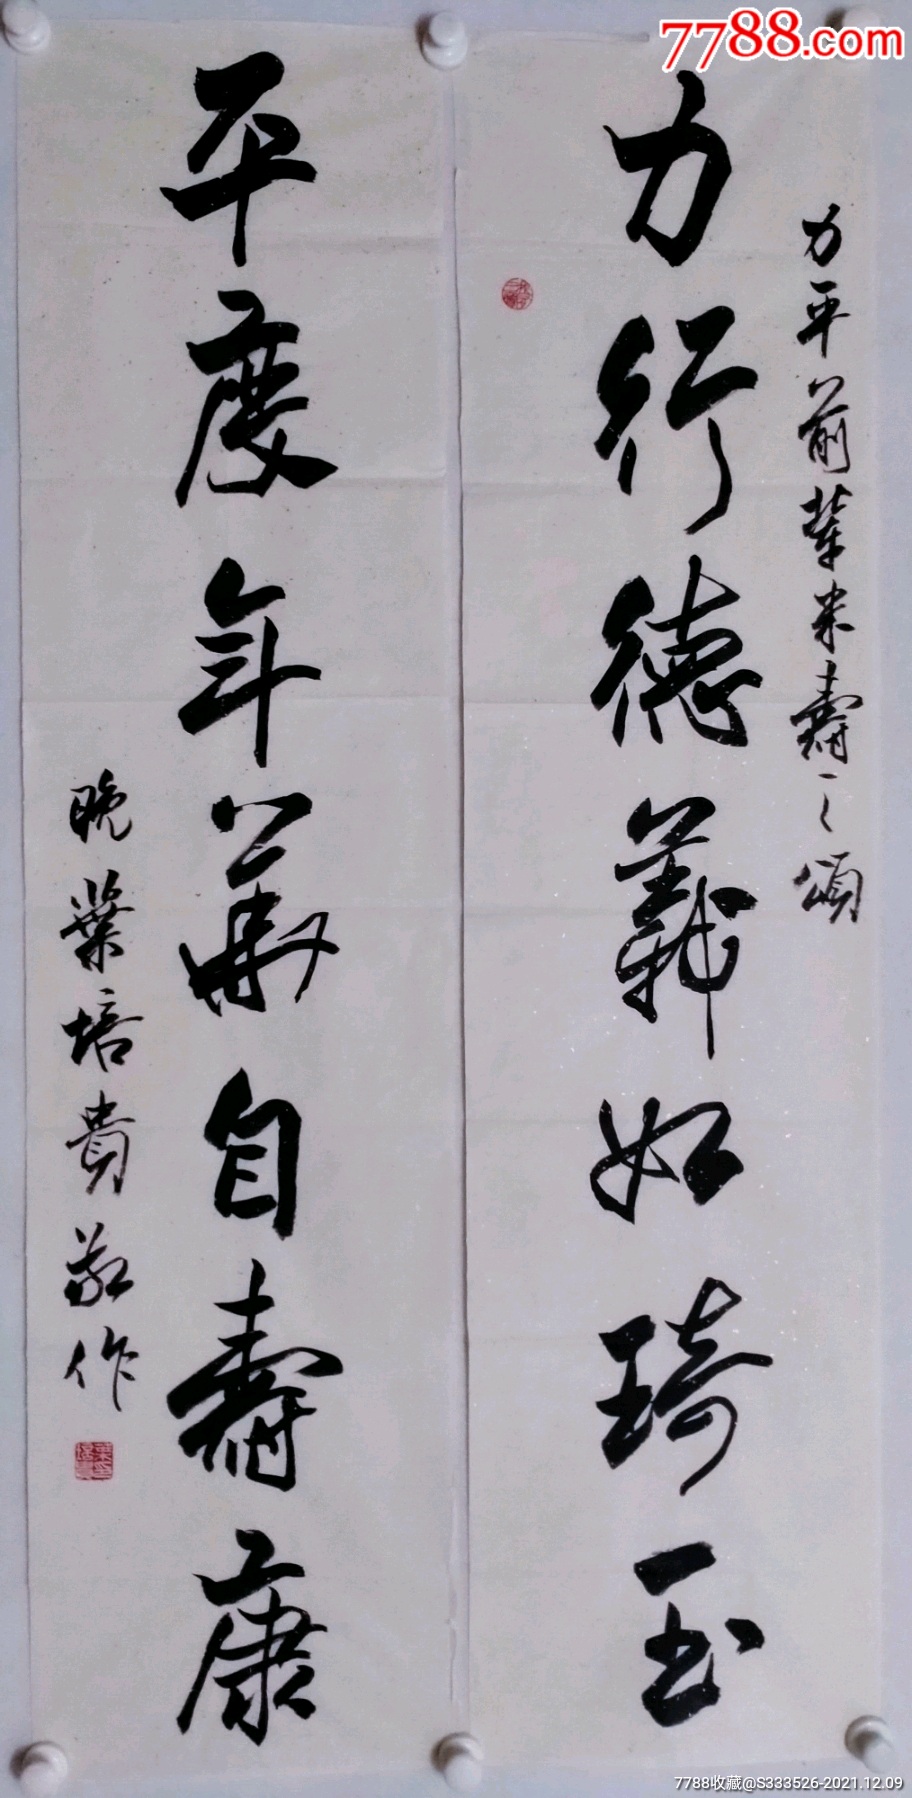 7788.com
力平前辈米壽之頌
力行德義如琦玉
平度年華自壽康
晚葉培貴敬作
7788收藏@S333526-2021.12.09